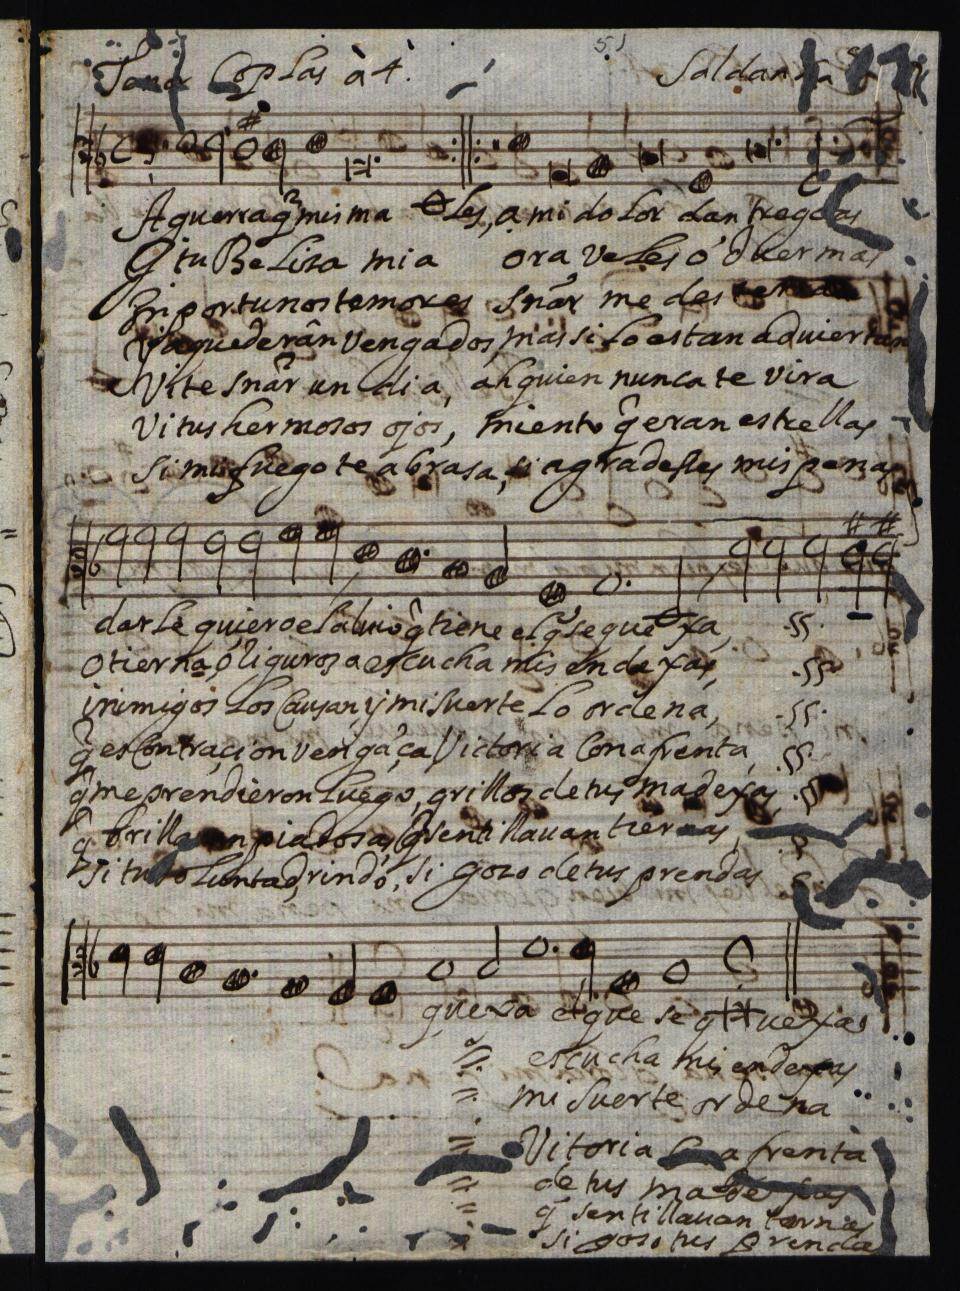 51
Tenor Coplas à 4. Saldanha
A guerra q̃ misma Les, a mi dolor dan treguas
Q tu Beliza mia ora veles ó duermas
Inportunos temores snõr me des
Ya quederán vengados, mas si lo estan adviertan
Vite snõr un dia, ah quien nunca te vira
Vi tus hermosos ojos, miento q̃ eran estrellas
Si mi fuego te abrasa, si agradeses mis penas
darle quiero el alivio q̃ tiene el q̃ se quexa,
O tierna, ó ligurosa escucha mis endexas,
inimigos los causan, y mi suerte lo ordena,
q̃ es contra, con vengãça Victoria con afrenta,
q̃ me prendieron luego, grillos de tus madexas,
q̃ brilla piadosas q̃ sentillavan tiernas,
Si tu voluntad rindó, si gozo de tus prendas
quexa el que se quexas
escucha mis endexas
mi suerte ordena
Vitoria afrenta
de tus madexas
q̃ sentillavan ternas
si goso tus prenda